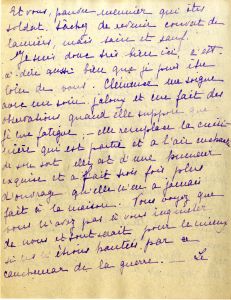 Et vous, pauvre meunier que êtes
soldat. Tâchez de revenir couvert de
lauriers, mais sain et sauf.
Je suis donc très bien ici, c'est
à dire aussi bien que je puis être
loin de vous. Clémence me soigne
avec un soin jaloux et me fait des
observations quand elle suppose que
je me fatigue. elle remplace la cuisi-
nière qui est partie et a l'air enchantée
de son sort, elle est d'une humeur
exquise et a fait trois fois plus
d'ouvrage qu'elle n'en a jamais
fait à la maison. Vous voyez que
vous n'avez pas à vous inquiéter
de nous et tout serait pour le mieux
si nous n'étions hantés par ce
cauchemar de la guerre. — Le